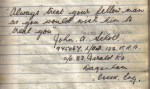 Always treat your fellow man
as you would wish him to
treat you
John A. Scholl
Dagenham
Essex. Eng.